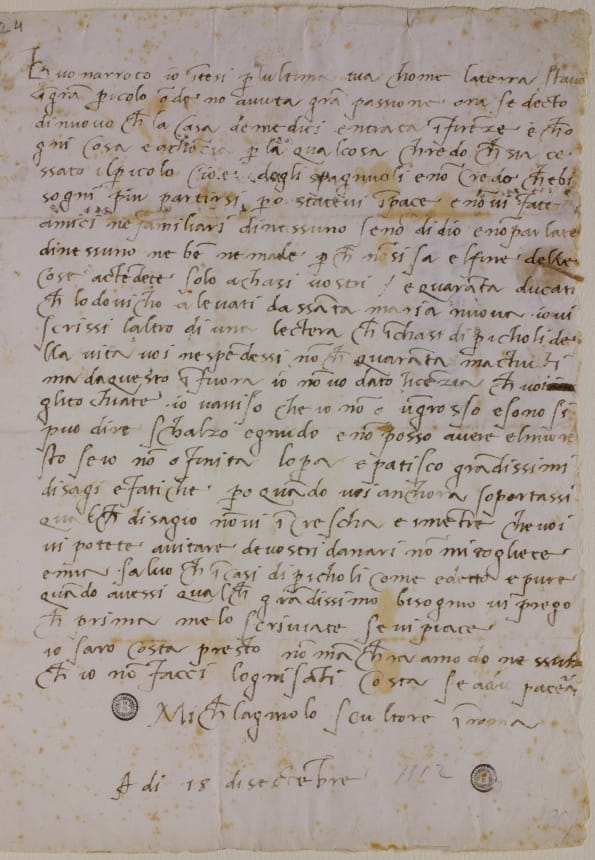 24
Buonarroto io intesi p(er) l'ultima tua chome la terra stava
i(n) gra(n) p(er)icolo onde no avuta gra(n) passione ora se decto
di nuovo ch(e) la casa de medici e ntrata i(n) fire(n)ze e ch(e) o
gni cosa e achoncia p(er) la qual cosa chredo ch(e) sia ce
ssato il p(er)icolo cioe degli spagnuoli e no credo ch(e) bi
sogni piu partirsi po statevi i(n) pace e no(n) vi fate
amici ne familiari di nessuno se no(n) di dio e no(n) parlate
di nessuno ne bene ne male p(er) ch(e) no(n) si sa el fine delle
cose actendete solo a chasi vostri / e quaranta ducati
ch(e) lodovicho a levati da ssanta maria nuova io vi
scrissi l altro di una lectera ch(e) i(n) chasi di p(er)icholi de
lla vita voi ne spendessi no(n) ch(e) quaranta ma tucti
ma da questo i(n) fuora io no(n) vo dato licenzia ch(e) voi
gli tochiate io v aviso che io no(n) o u(n) grosso e sono si
puo dire schalzo e gnudo e no(n) posso avere el mio re
sto se io no(n) o finita lop(er)a e patisco grandissimi
disagi e fatiche po(quando) voi anchora soportassi
qualch(e) disagio no(n) vi i(n)crescha e i(n)mentre che voi
vi potete aiutare de vostri danari no(n) mi togliete
e mia salvo ch(e) i(n) casi di p(er)icholi come e decto e pure
quado avessi qualch(e) gra(n)dissimo bisogno vi prego
ch(e) prima me lo scriviate se vi piace
io saro costa presto no(n) ma(n)ch(e)ra i(n) modo nessuno
ch(e) io no(n) facci l ognisa(n)ti costa se a dio piacera
Mich(e)lagniolo scultore i(n) roma
A di 18 di sectembre 1512